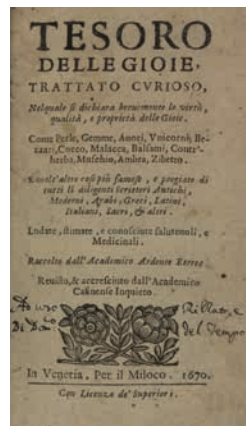 TESORO
DELLE GIOIE,
TRATTATO CVRIOSO,
Nelquale si dichiara breuemente le virtù,
qualità, e proprietà delle Gioie.
Come Perle, Gemme, Auori, Vnicorni, Be-
zaari, Cocco, Malacca, Balsami, Contr'-
herba, Muschio, Ambra, Zibetto.
E molt'altre cose più famose, e pregiate da
tutti li diligenti Scrittori Antichi,
Moderni, Arabi, Greci, Latini,
Italiani, Sacri, & altri.
Lodate, stimate, e conosciute saluteuoli, e
Medicinali.
Raccolto dall'Academico Ardente Etereo
Reuisto, & accresciuto dall'Academico
Casinense Inquieto.
Ad uso
Di
del Tempo
In Venetia, Per il Miloco. 1670.
Con Licenza de' Superiori.